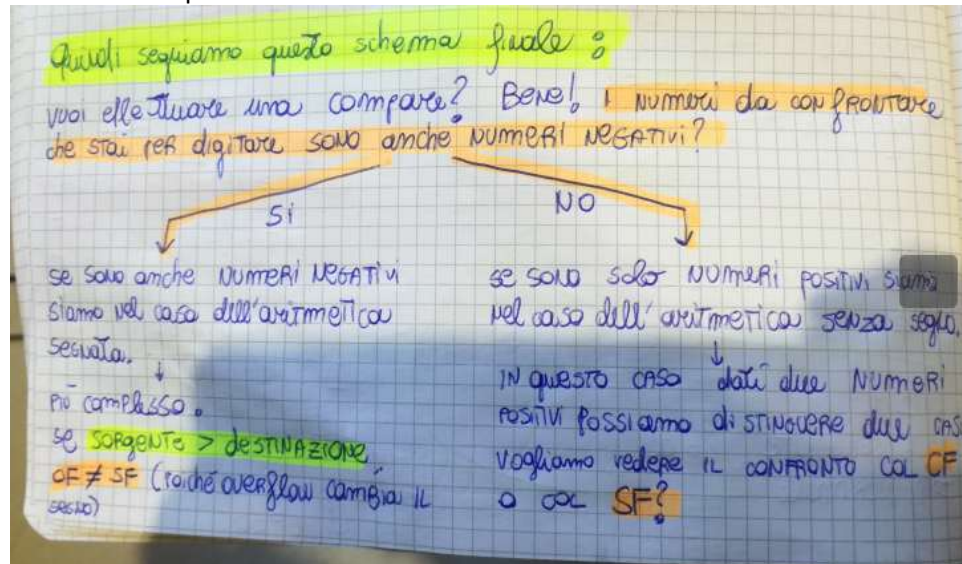 Quindi seguiamo questo schema finale :
vuoi effettuare una compare? Bene! I numeri da confrontare
che stai per digitare sono anche numeri negativi?
Si
NO
se sono anche numeri negativi
siamo nel caso dell'aritmetica
segnata.
più complesso.
se sorgente > destinazione
OF ≠ SF (poiché overflow cambia il
segno)
se sono solo numeri positivi siamo
nel caso dell'aritmetica senza segno.
IN questo caso dati due numeri
positivi possiamo distinguere due casi
vogliamo vedere il confronto col CF
o col SF?